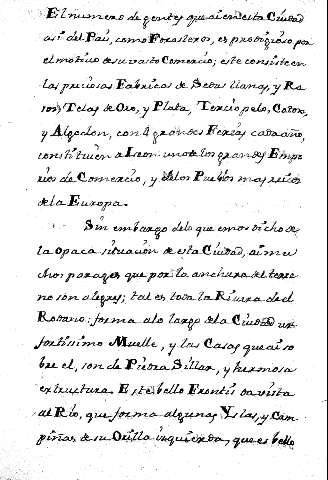 El numero de gentes que ai en esta Ciudad
asi del Pais, como Forasteros, es prodigioso por
el motivo de su vasto Comercio; este consiste en
las preciosas Fabricas de Sedas llanas, y Ra
son, Telas de Oro, y Plata, Terciopelo, Coton,
y Algodon, con 4 grandes Ferias cada año,
constituien a Leon uno de los grandes Empo
rios de Comercio, y de los Pueblos mas ricos
de la Europa.
Sin embargo de lo que emos dicho de
la opaca situacion de esta Ciudad, ai mu
chos parages que por la anchura del terre
no son alegres; tal es toda la Rivera del
Rodano: forma a lo largo de la Ciudad un
fortissimo Muelle, y las Casas que ai so
bre el, son de Piedra Sillar, y hermosa
extructura. Este bello Frontis da vista
al Rio, que forma algunas Yslas, y Cam
piñas de su Orilla izquierda, que es bello